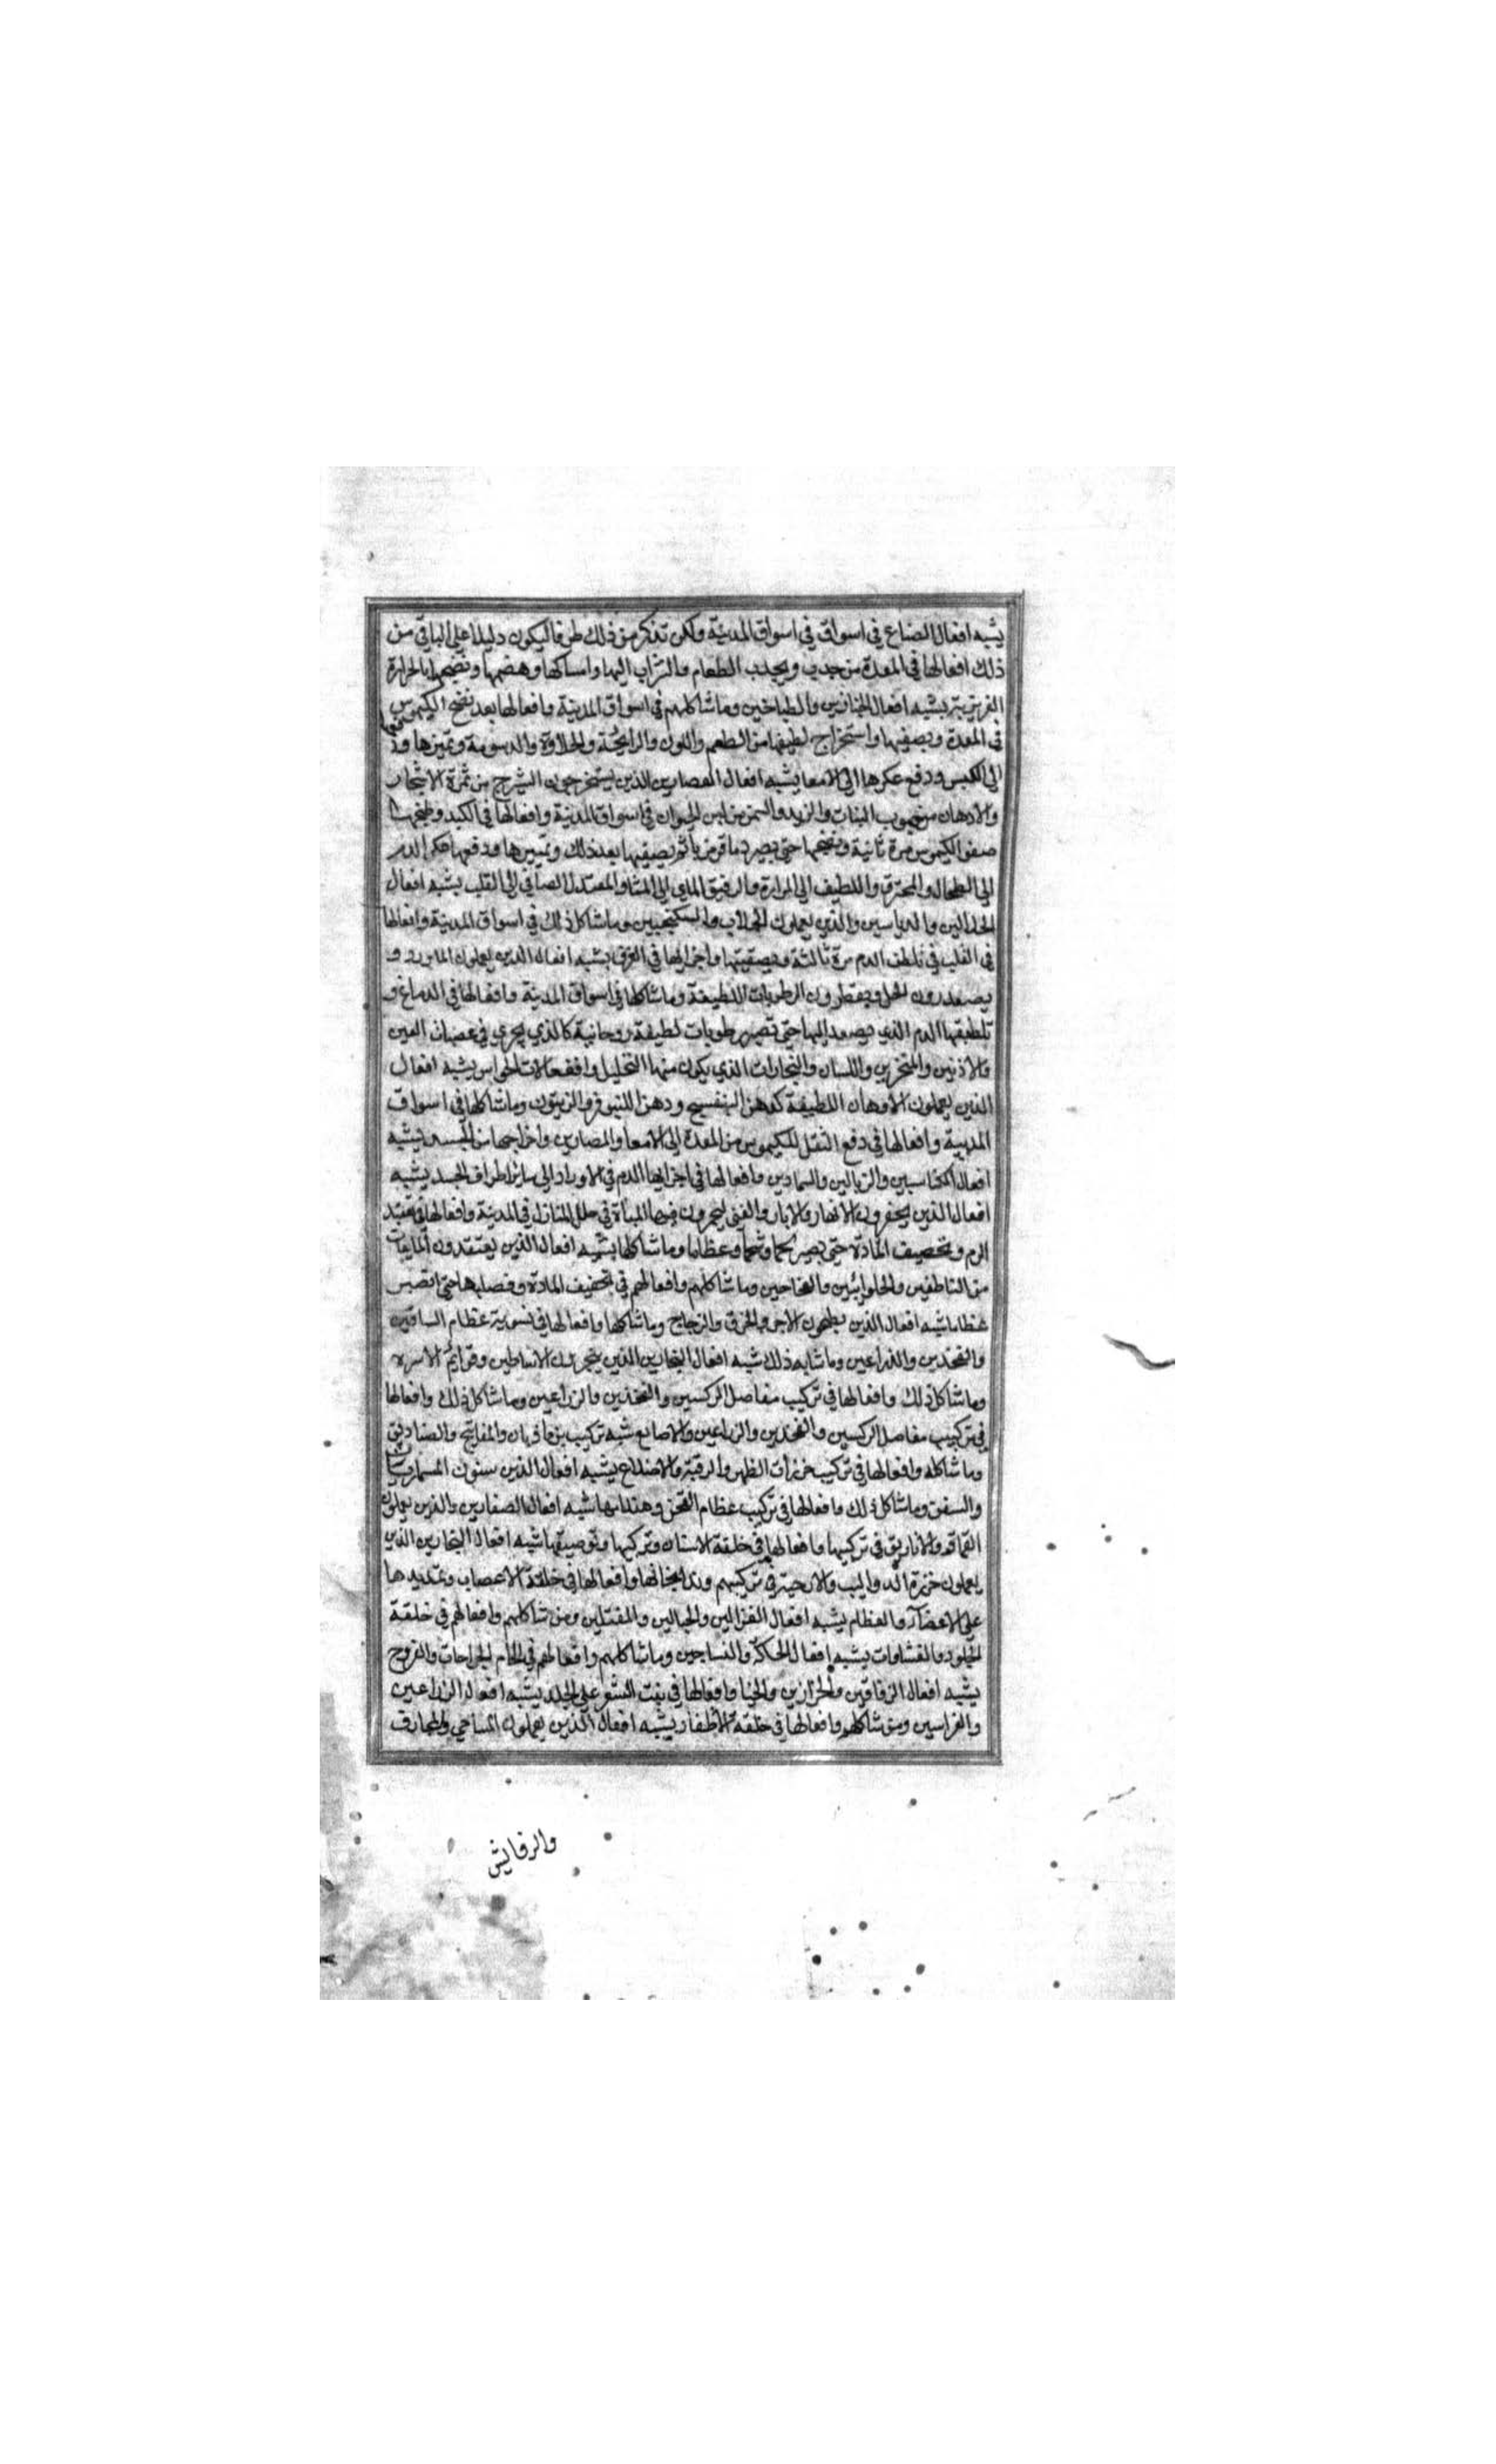 يشبه افعال الصناع في اسواق في اسواق المدينة ولكن تذكر من ذلك طرفا ليكون دليلا على الباقي من
ذلك افعالها في المعدة من جدب ويجدب الطعام والشراب اليها وامساكها وهضمها ونضجها بالحرارة
الغريزية يشبه افعال الخبازين والطباخين وماشاكلهم في اسواق المدينة وافعالها بعد نضج الكيموس
في المعدة وبصفيها واستخراج لطيفها من الطعم واللون والرايحة والحلاوة والدسومة وتميزها ودفعها
الى الكبس ودفع عكرها الى الامعا يشبه افعال العصارين الذين يستخرجون الشيرج من ثمرة الاشجار
والادهان من حبوب النبات والزيد والسمن من لبن الحيوان في اسواق المدينة وافعالها في الكبد وطبخها
صفو الكيموس مرة ثانية ونضجها حتى يصير دما قرمزيا ثم يصفيها بعد ذلك وتميزها ودفعها عكر الدم
الى الطحال والمحترق واللطيف الى المرارة والرقيق الماى الى المثا والمعتدل الصافي الى القلب يشبه افعال
الحلالين والدباسين والذين يعملون الجلاب والسكنجبين وماشاكل ذلك في اسواق المدينة وافعالها
في القلب في تلطف الدم مرة ثالثة وبصفيتها واجرايها في العرق يشبه افعال الذين يعملون الماورد و
يصعدرون الخل ويقطرون الرطوبات اللطيفة وماشاكلها في اسواق المدينة وافعالها في الدماغ و
تلطيفها الدم الذي يصعد اليها حتى تصير رطوبات لطيفة روحانية كالذي يجري في عصبان العين
والاذنين والمنخرين واللسان والبخارات الذي يكون منها التحليل وافقعالات الحواس يشبه افعال
الذين يعملون الادهان اللطيفة كدهن البنفسج ودهن اللنيوفر والزيتون وماشاكلها في اسواق
المدينة وافعالها في دفع الثقل للكيموس من المعدة الى الامعا والمصارين واخراجها من الجسد يشبه
افعال الكناسين والزبالين والسمادين وافعالها في اجرايها الدم في الاوراد الى ساير اطراف الجسد يشبه
افعال الذين يحفرون الانهار والابار والقنى ليجرون فيها المياة في خلل المنازل في المدينة وافعالها في تعقيد
الدم وتحصيف المادة حتى يصير لحما وشحما وعظاما وماشاكلها يشبه افعال الذين يعتقدون المايعات
من الناطفين والحلوائيين وماشاكلهم وافعالهم في تجفيف المادة وفصلها حتى تصير
عظاما شبه افعال الذين يطبخون الاجر والخزف والزجاج وماشاكلها وافعالها في تسوية عظام الساقين
والفخذين والذراعين وماشابه ذلك شبه افعال النجارين الذين ينجرون الاساطين وقوايم الاسرة
وماشاكل ذلك وافعالها في تركيب مفاصل الركبتين والفخذين والذراعين وماشاكل ذلك وافعالها
في تركيب مفاصل الركبتين والفخذين والذراعين والاصابع شبه تركيب والمفاتيح والصناديق
وماشاكله وافعالها في تركيب خرزات الظهر والرقبة والاضلاع يشبه افعال الذين
والسفن وماشاكل ذلك وافعالها في تركيب عظام القحف وهندامها شبه افعال الصفارين والذين يعملون
القماقم والاباريق في تركيبها وافعالها في خلقة الاسنان وتركيبها وتوصيفها شبه افعال النجارين الذين
يعملون خرزة الدواليب والارحية في تركيبهم وافعالها في خلقة الاعصاب وتمديدها
على الاعضآ والعظام يشبه افعال الغزالين والحبالين والمفتلين ومن شاكلهم وافعالهم في خلقة
الجلود والغشاوات يشبه افعال الحاكة والنساجين وماشاكلهم وافعالهم في الحام الجراحات والقروح
يشبه افعال الرفاقين والخرازين والخيا وافعالها في نبت الشعر على الجلد يشبه افعال الزراعين
والغراسين ومن شاكلهم وافعالها في خلقة الاظفار يشبه افعال الذين يعملون المساحي والمجارف